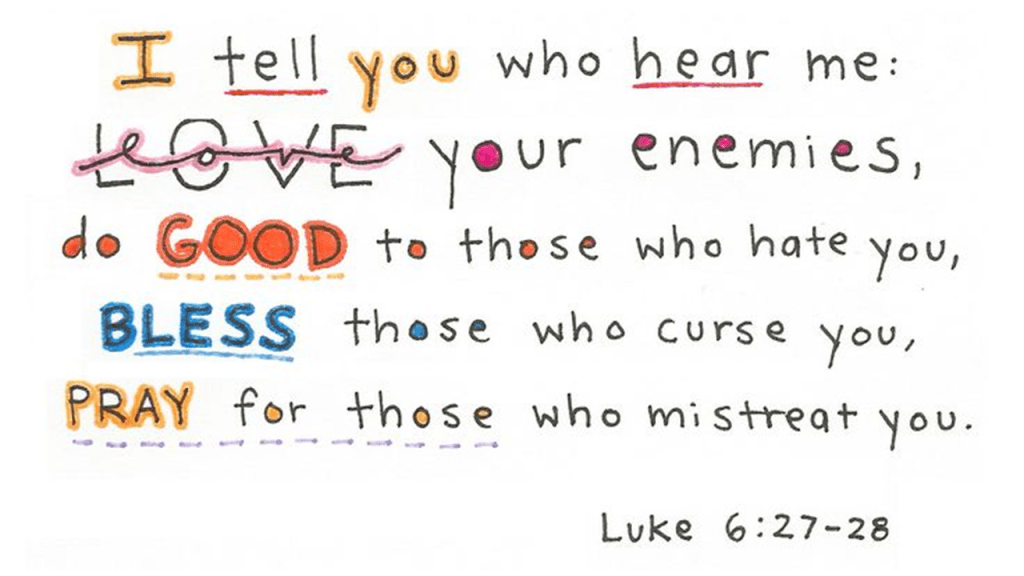 I tell you who hear me:
LOVE your enemies,
do GOOD to those who hate you,
BLESS those who curse you,
PRAY for those who mistreat you.
Luke 6:27-28